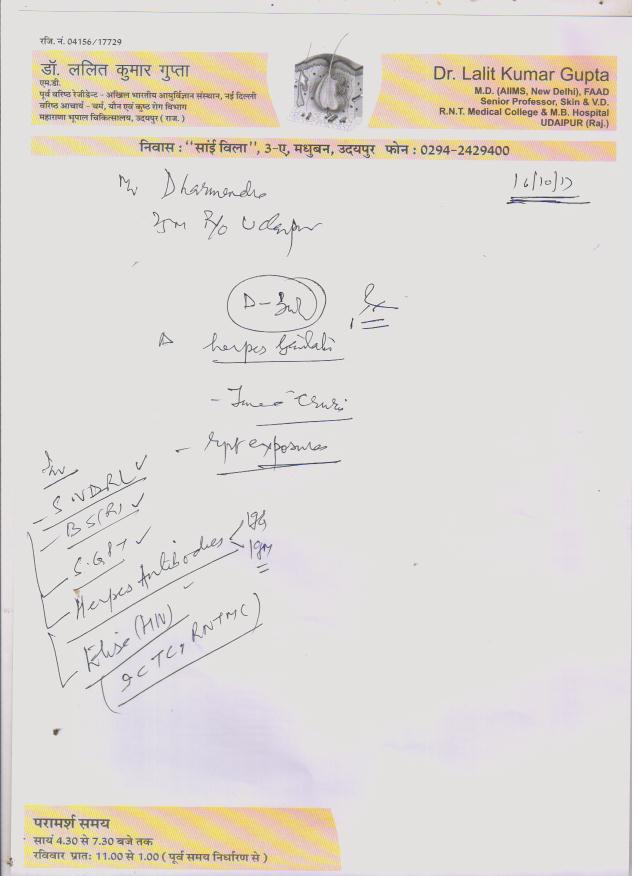 रजि. नं. 04156/17729
डॉ. ललित कुमार गुप्ता
एम.डी.
पूर्व वरिष्ठ रेजीडेन्ट - अखिल भारतीय आयुर्विज्ञान संस्थान, नई दिल्ली
वरिष्ठ आचार्य - चर्म, यौन एवं कुष्ठ रोग विभाग
महाराणा भूपाल चिकित्सालय, उदयपुर ( राज. )
Dr. Lalit Kumar Gupta
M.D. (AIIMS, New Delhi), FAAD
Senior Professor, Skin & V.D.
R.N.T. Medical College & M.B. Hospital
UDAIPUR (Raj.)
निवास : ''सांई विला'', 3-ए, मधुबन, उदयपुर फोन : 0294-2429400
Mr Dharmendra
16/10/17
R/o Udaipur
Rx
herpes Genitalis
- Tinea Cruris
- rpt exposures
Inv
- S.VDRL ✓
- BS(R) ✓
- S.GPT ✓
- Herpes Antibodies < IgG
IgM
- Elisa (HIV)
(ICTC, RNTMC)
परामर्श समय
सायं 4.30 से 7.30 बजे तक
रविवार प्रातः 11.00 से 1.00 ( पूर्व समय निर्धारण से )